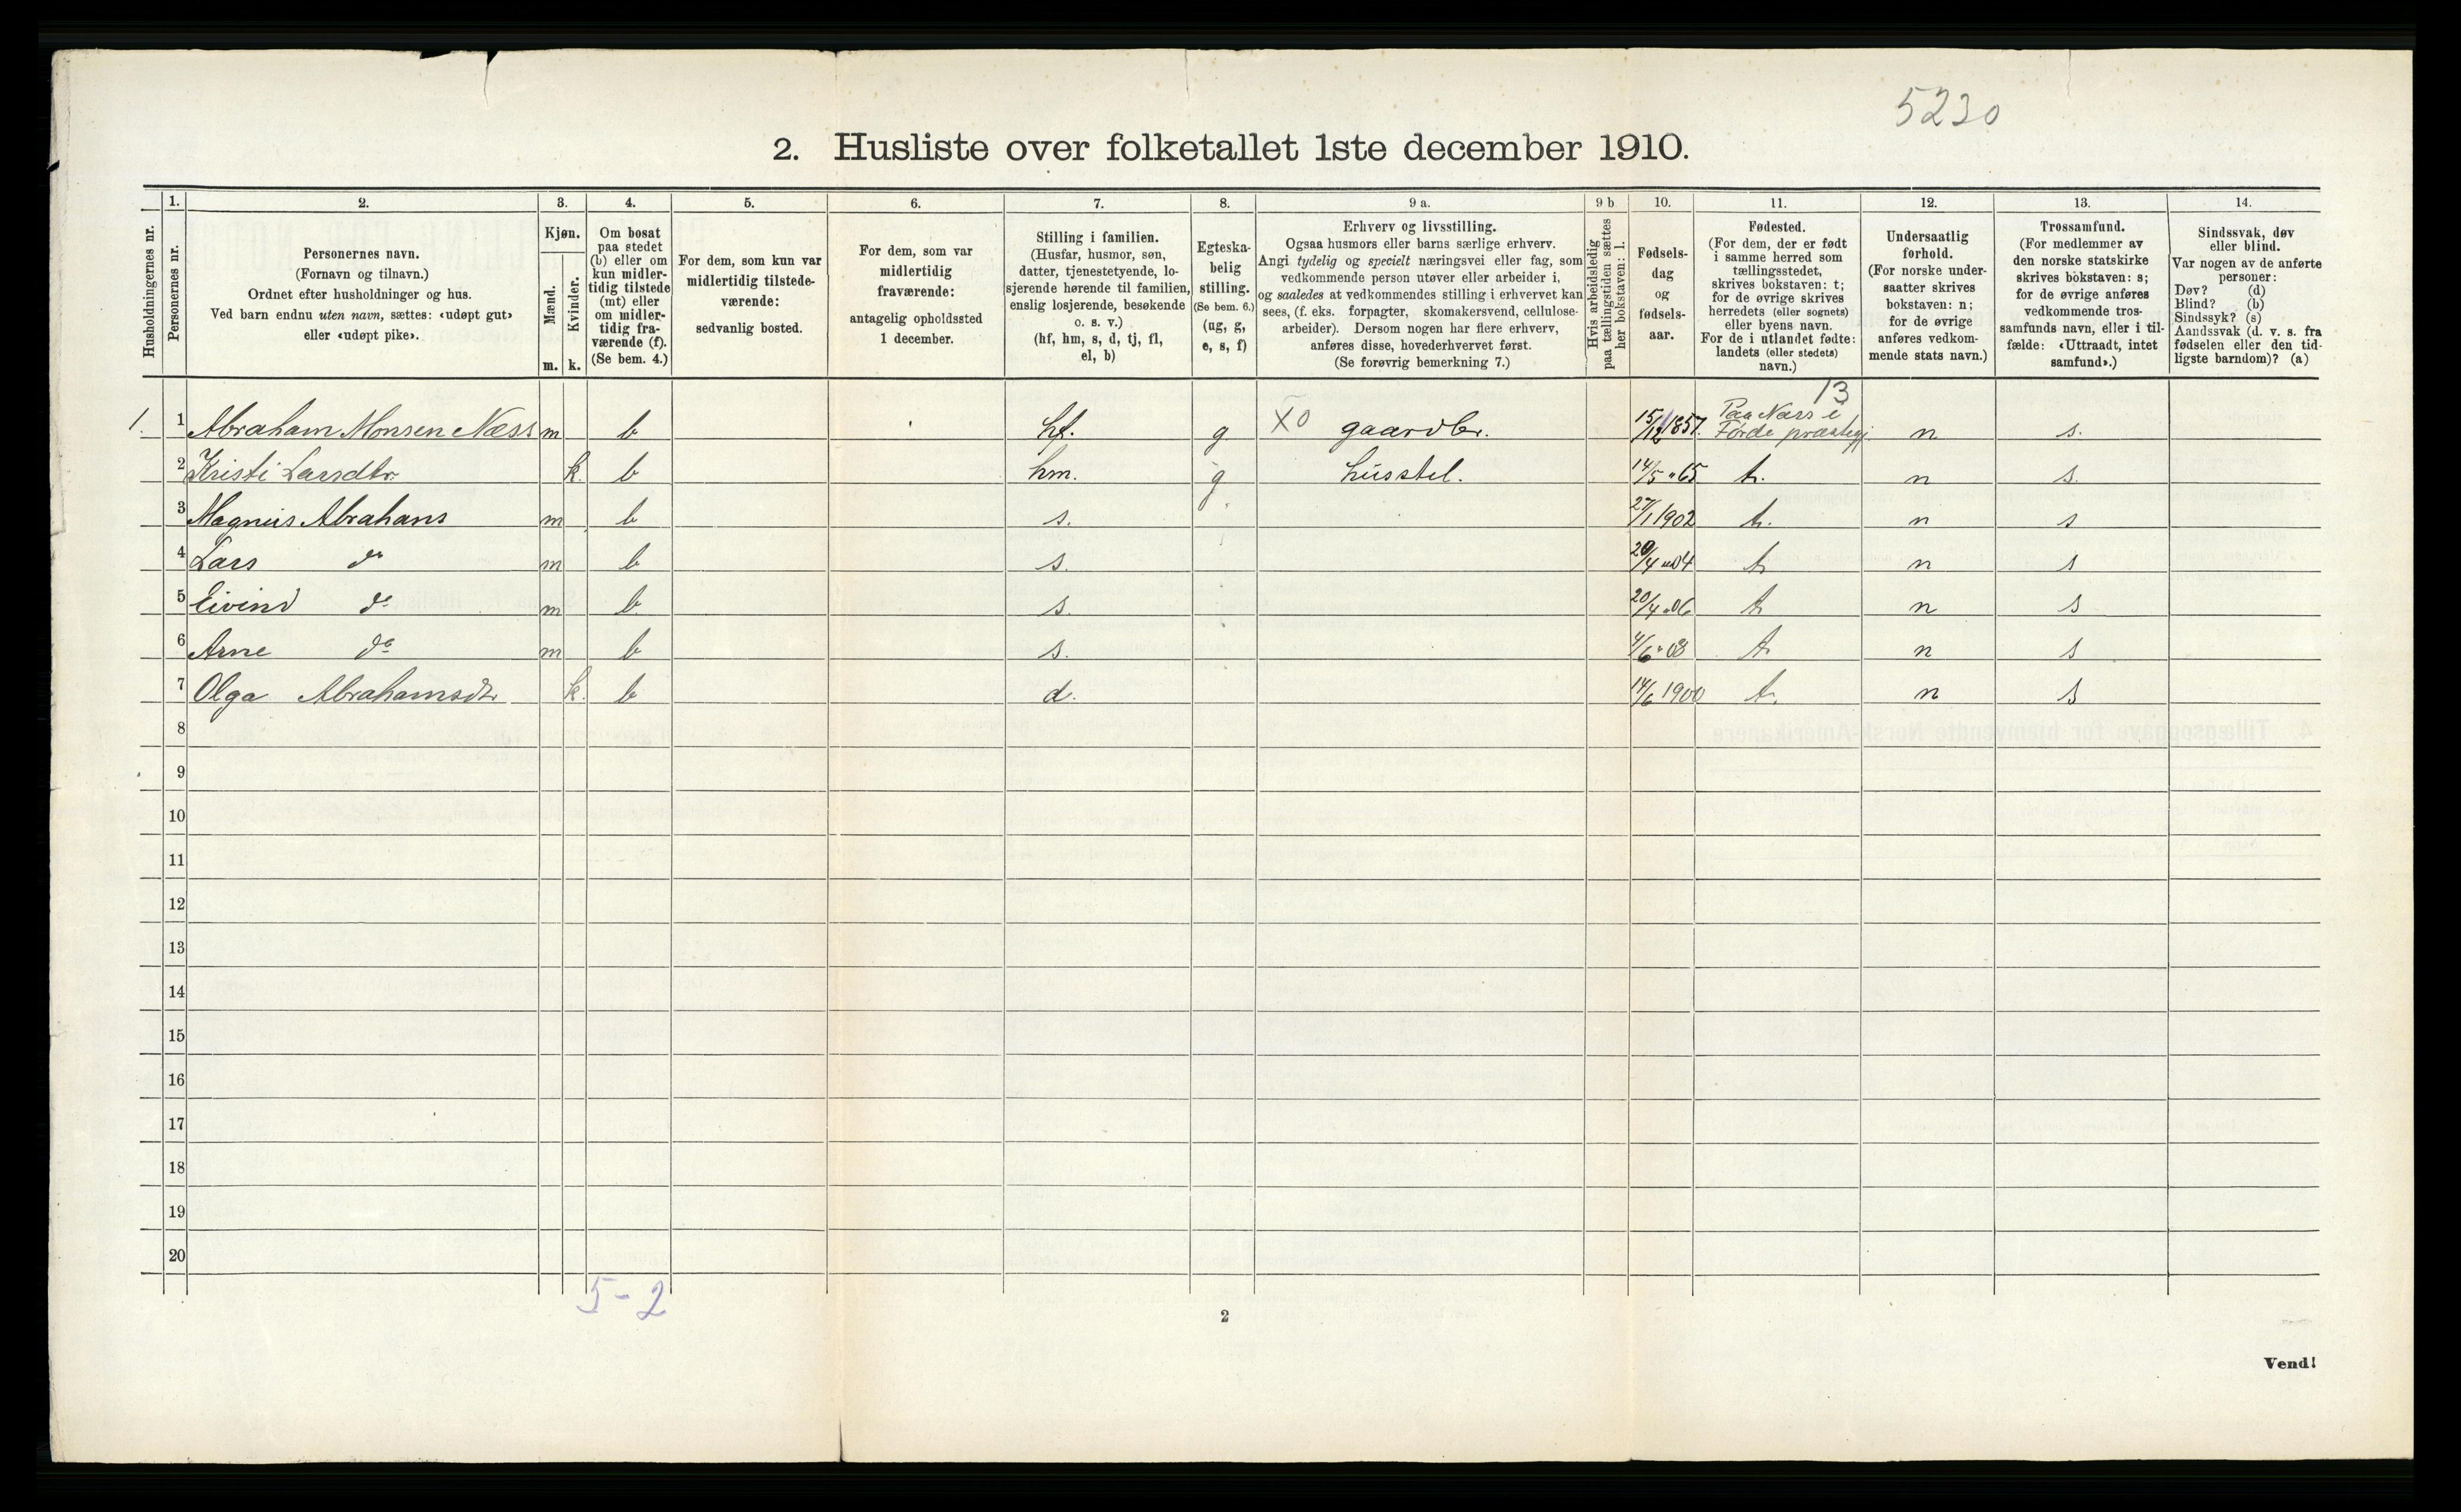 5230
2. Husliste over folketallet 1ste december 1910.
Husholdningernes nr.
1.
Personernes nr.
2.
Personernes navn.
(Fornavn og tilnavn.)
Ordnet efter husholdninger og hus.
Ved barn endnu uten navn, sættes: «udøpt gut»
eller «udøpt pike».
3.
Kjøn.
Mænd.
Kvinder.
m. k.
4.
Om bosat
paa stedet
(b) eller om
kun midler-
tidig tilstede
(mt) eller
om midler-
tidig fra-
værende (f).
(Se bem. 4.)
5.
For dem, som kun var
midlertidig tilstede-
værende:
sedvanlig bosted.
6.
For dem, som var
midlertidig
fraværende:
antagelig opholdssted
1 december.
7.
Stilling i familien.
(Husfar, husmor, søn,
datter, tjenestetyende, lo-
sjerende hørende til familien,
enslig losjerende, besøkende
o. s. v.)
(hf, hm, s, d, tj, fl,
el, b)
8.
Egteska-
belig
stilling.
(Se bem. 6.)
(ug, g,
e, s, f)
9 a.
Erhverv og livsstilling.
Ogsaa husmors eller barns særlige erhverv.
Angi tydelig og specielt næringsvei eller fag, som
vedkommende person utøver eller arbeider i,
og saaledes at vedkommendes stilling i erhvervet kan
sees, (f. eks. forpagter, skomakersvend, cellulose-
arbeider). Dersom nogen har flere erhverv,
anføres disse, hovederhvervet først.
(Se forøvrig bemerkning 7.)
9 b
Hvis arbeidsledig
paa tællingstiden sættes
her bokstaven: l.
10.
Fødsels-
dag
og
fødsels-
aar.
11.
Fødested.
(For dem, der er født
i samme herred som
tællingsstedet,
skrives bokstaven: t;
for de øvrige skrives
herredets (eller sognets)
eller byens navn.
For de i utlandet fødte:
landets (eller stedets)
navn.)
12.
Undersaatlig
forhold.
(For norske under-
saatter skrives
bokstaven: n;
for de øvrige
anføres vedkom-
mende stats navn.)
13.
Trossamfund.
(For medlemmer av
den norske statskirke
skrives bokstaven: s;
for de øvrige anføres
vedkommende tros-
samfunds navn, eller i til-
fælde: «Uttraadt, intet
samfund».)
14.
Sindssvak, døv
eller blind.
Var nogen av de anførte
personer:
Døv? (d)
Blind? (b)
Sindssyk? (s)
Aandssvak (d. v. s. fra
fødselen eller den tid-
ligste barndom)? (a)
13
Paa Næss i
1. 1 Abraham Monsen Næss m b hf. g X0 gaardbr. 15/12 1857. Førde præstegj. n s.
2 Kristi Larsdtr. k. b hm. g husstel. 14/5 " 65 t. n s.
3 Magnus Abrahams m b s. 27/1 1902 t. n s
4 Lars do m b s. 20/4 " 04 t n s
5 Eivind do m b s. 20/4 " 06 t n s
6 Arne do m b s. 4/6 " 08 t n s
7 Olga Abrahamsdtr k. b d. 14/6 1900 t. n s
8
9
10
11
12
13
14
15
16
17
18
19
20
5-2
2
Vend!